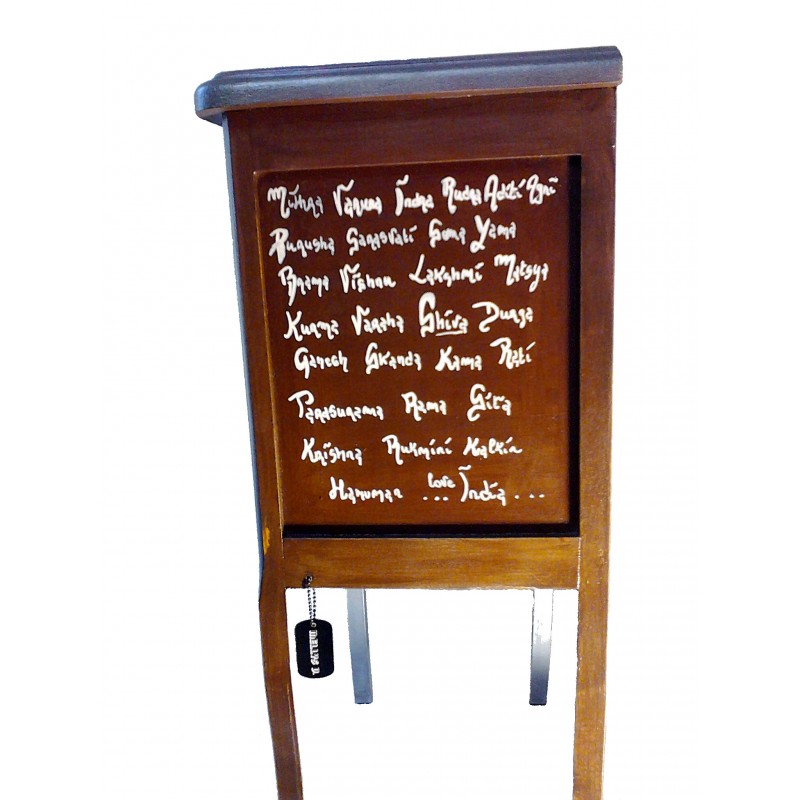 Mithra Varuna Indra Rudra Aditi Agni
Purusha Sarasvati Soma Yama
Brama Vishnu Lakshmi Matsya
Kurma Varaha Shiva Durga
Ganesh Skanda Kama Rati
Parasurama Rama Sita
Krishna Rukmini Kalkin
Hanuman ... love India ...